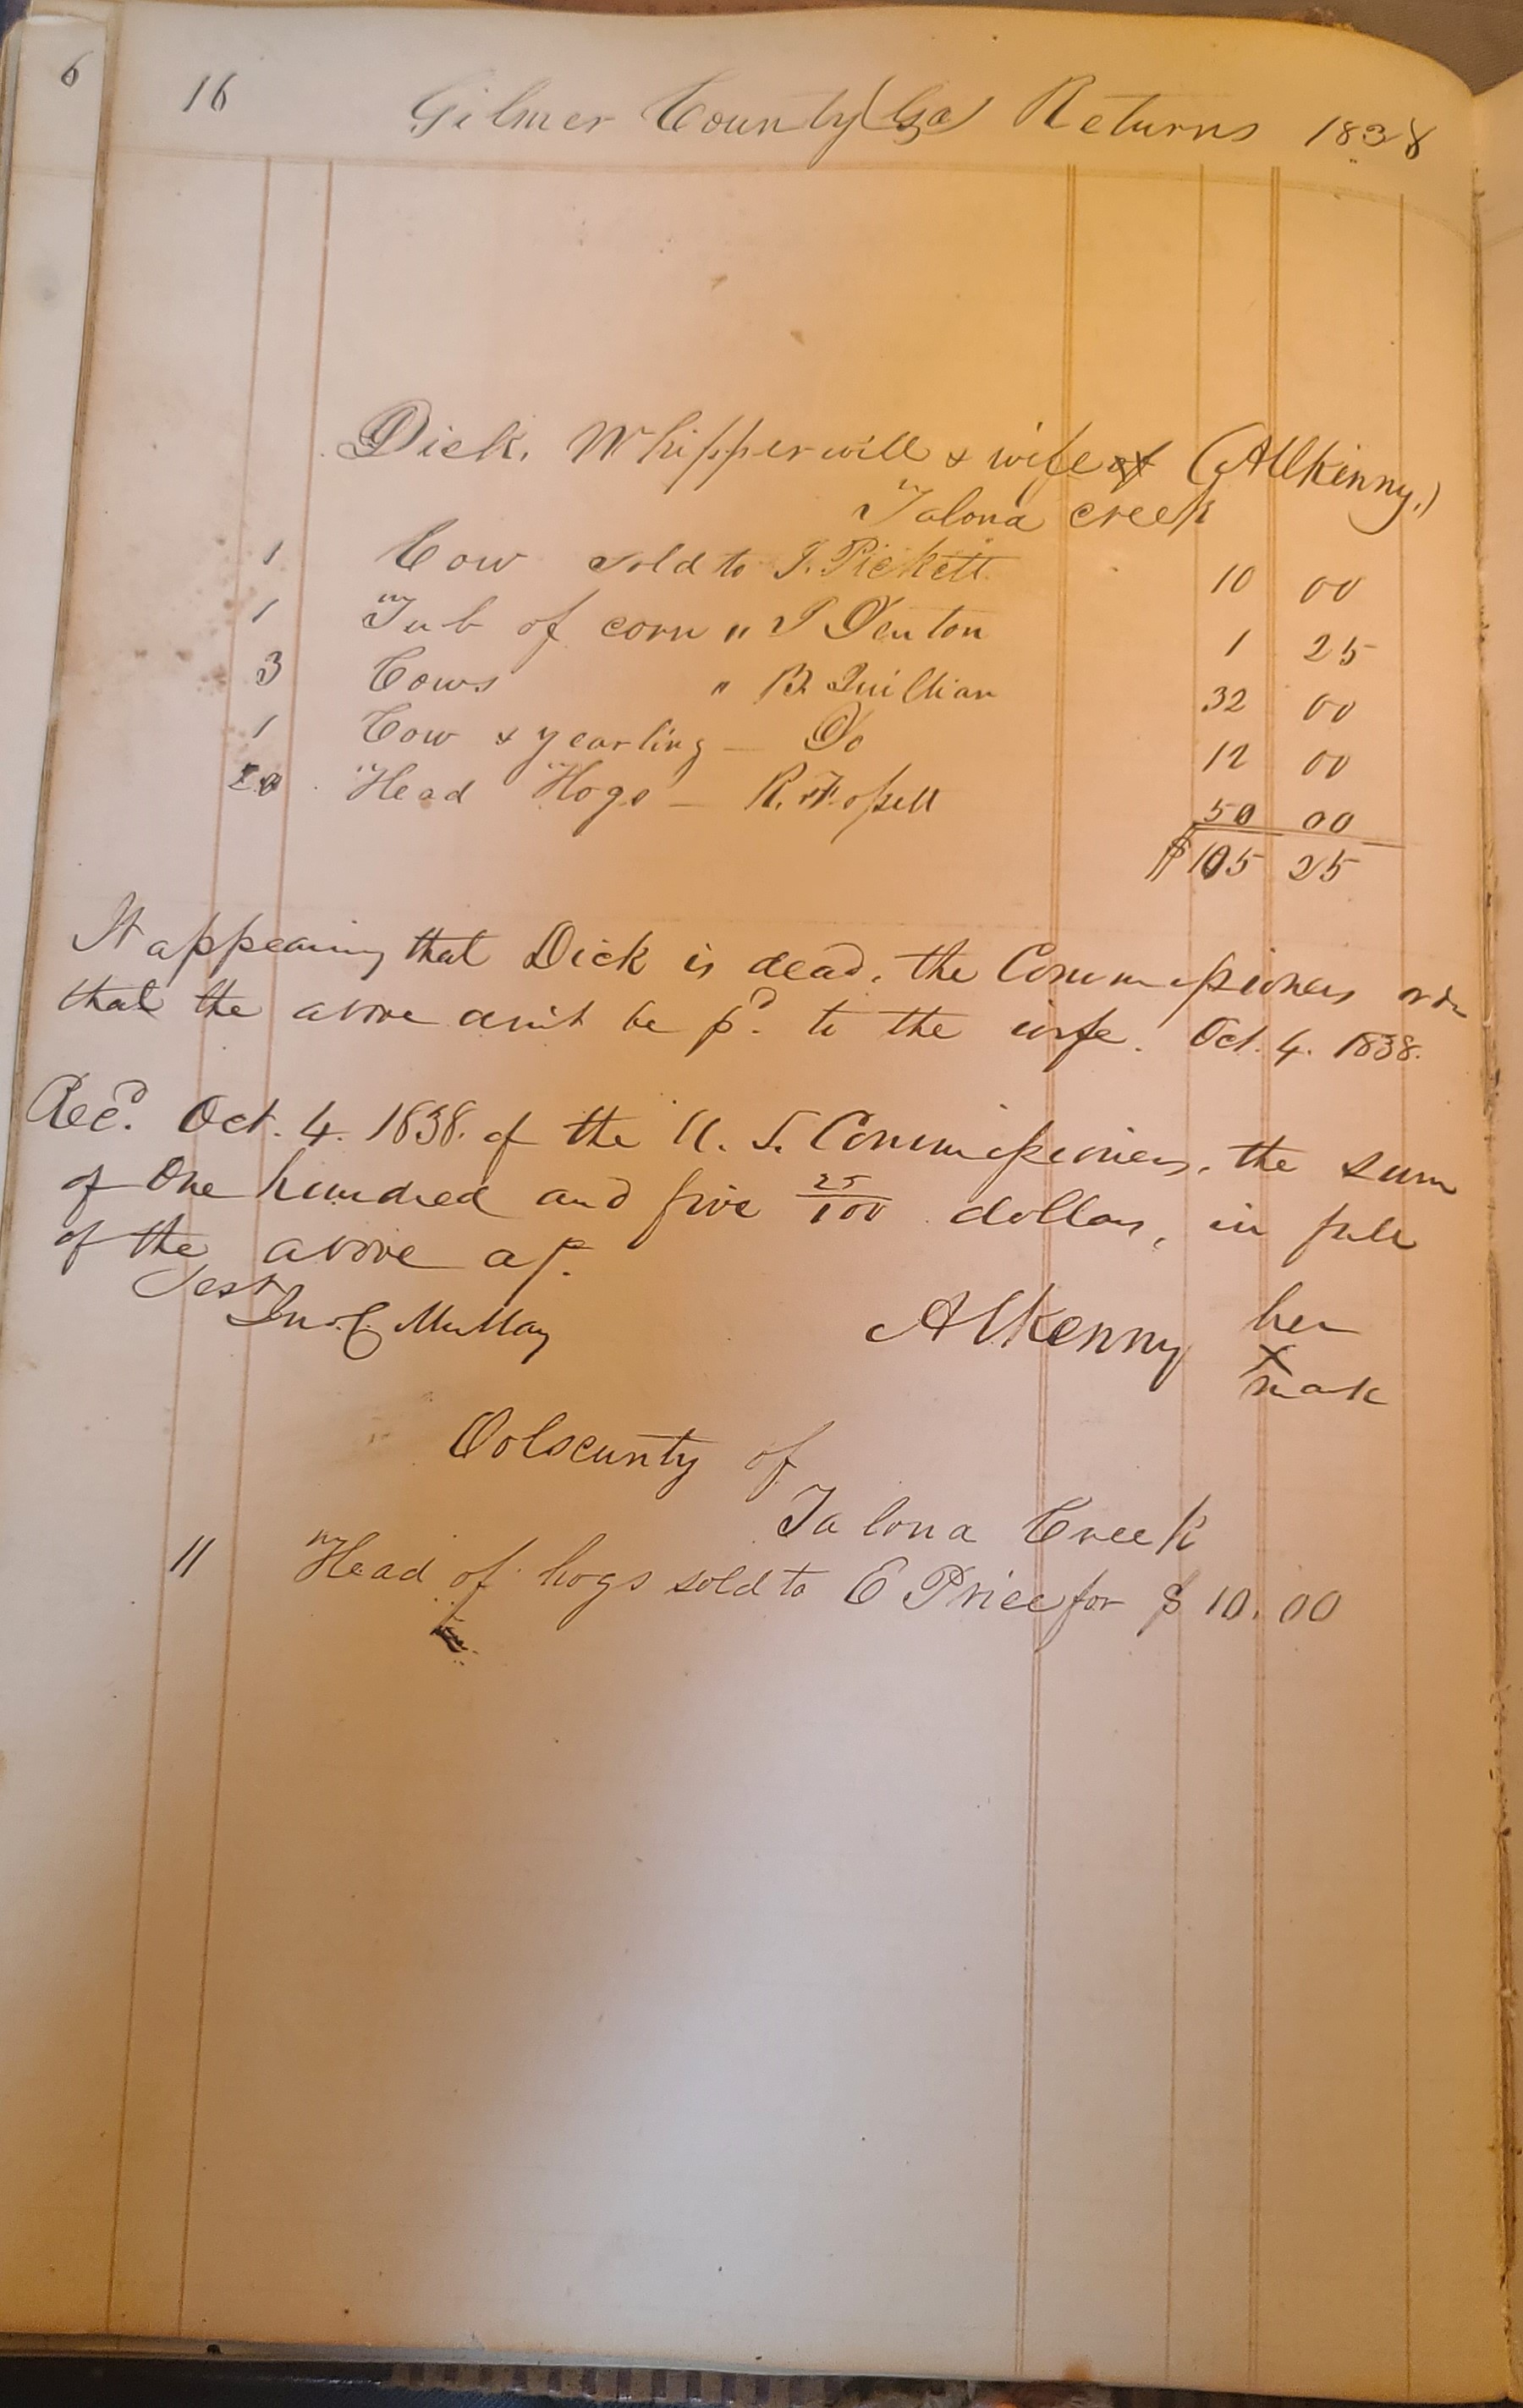 6
16 Gilmer County (Ga) Returns 1838
Dick, Whipperwill & wife (Alkinny.)
Talona creek
1 Cow sold to J. Pickett 10 00
1 Tub of corn " J Denton 1 25
3 Cows " B. Quillian 32 00
1 Cow & yearling – Do 12 00
20 Head Hogs – R. 50 00
$105 25
It appearing that Dick is dead, the Commissioners order
that the above am't be pd. to the wife. Oct. 4. 1838.
Recd. Oct. 4. 1838. of the U. S. Commissioners, the sum
of One hundred and five 25/100 dollars, in full
of the above a/c.
Test
Jno. C. Mullay Alkenny her
X
mark
Oolscunty of
Talona Creek
11 Head of hogs sold to E Price for $ 10.00